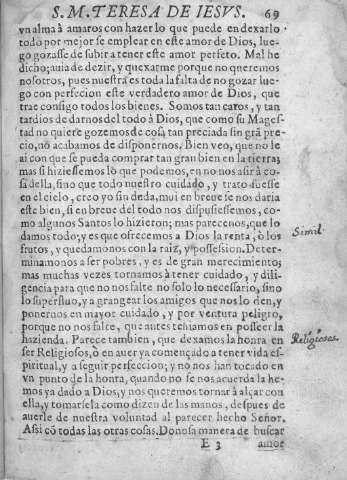 S. M. TERESA DE IESVS. 69
vn alma à amaros con hazer lo que puede en dexarlo
todo por mejor se emplear en este amor de Dios, lue-
go gozasse de subir a tener este amor perfeto. Mal he
dicho; auia de dezir, y quexarme porque no queremos
nosotros, pues nuestra es toda la falta de no gozar luego
con perfecion este verdadero amor de Dios, que
trae consigo todos los bienes. Somos tan caros, y tan
tardios de darnos del todo à Dios, que como su Mages-
tad no quiere gozemos de cosa tan preciada sin grã pre-
cio, no acabamos de disponernos. Bien veo, que no le
ai con que se pueda comprar tan gran bien en la tierra;
mas si hiziessemos lo que podemos, en no nos asir à co-
sa della, sino que todo nuestro cuidado, y trato fuesse
en el cielo, creo yo sin duda, mui en breue se nos daria
este bien, si en breue del todo nos dispusiessemos, co-
mo algunos Santos lo hizieron; mas parecenos, que lo
damos todo; y es que ofrecemos a Dios la renta, ò los
frutos, y quedamonos con la raiz, y possession. Deter-
minamonos a ser pobres, y es de gran merecimiento;
mas muchas vezes tornamos à tener cuidado, y dili-
gencia para que no nos falte no solo lo necessario, sino
lo superfluo, y a grangear los amigos que nos lo den, y
ponernos en mayor cuidado, y por ventura peligro,
porque no nos falte, que antes teniamos en posseer la
hazienda. Parece tambien, que dexamos la honra en
ser Religiosos, ò en auer ya començado a tener vida es-
piritual, y a seguir perfeccion; y no nos han tocado en
vn punto de la honra, quando no se nos acuerda la he-
mos ya dado a Dios, y nos queremos tornar à alçar con
ella, y tomarsela como dizen de las manos, despues de
auerle de nuestra voluntad al parecer hecho Señor.
Assi cõ todas las otras cosas. Donosa manera de buscar
E 3 amor
Simil.
Religiosos.